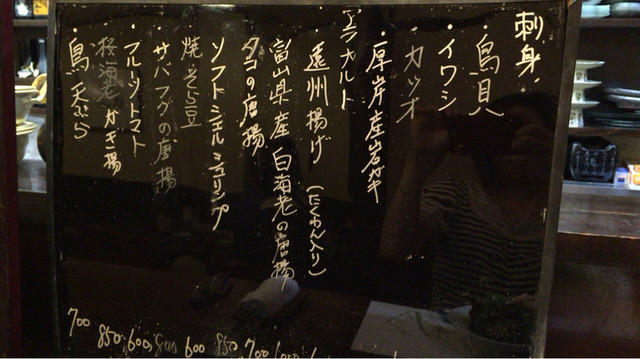 刺身
・鳥貝
・イワシ
・カツオ
・厚岸産岩ガキ
アラカルト
・遠州揚げ（たくわん入り）
・富山県産白海老の唐揚
・タコの唐揚
・ソフトシェルシュリンプ
・焼そら豆
・サバフグの唐揚
・フルーツトマト
・桜海老かき揚
・鳥天ぷら
700
850
600
600
850
700